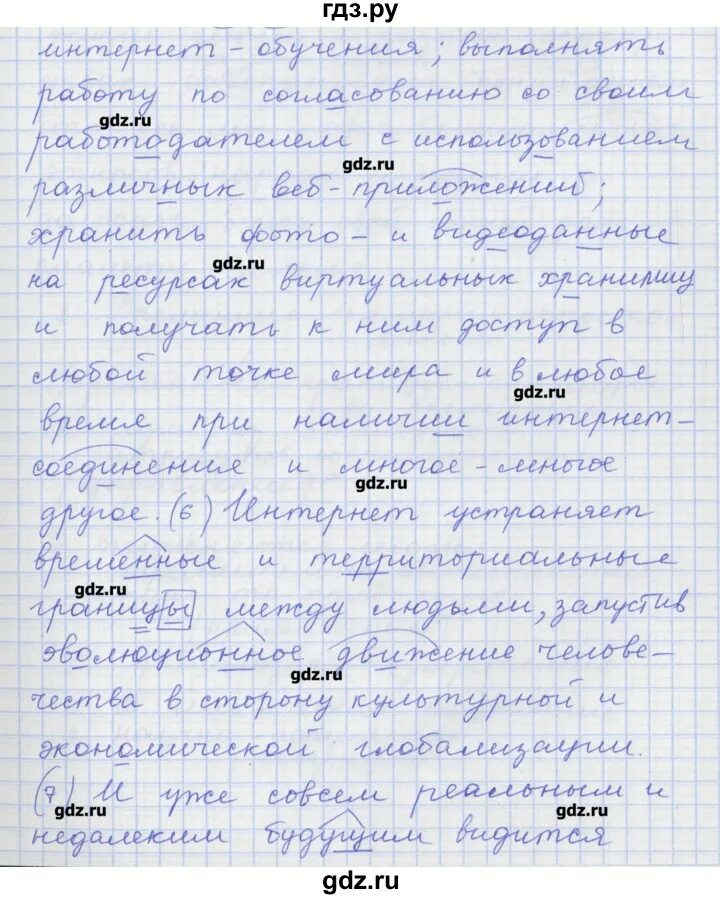 гдз.ру
интернет - обучения; выполнять
работу по согласованию со своим
gdz.ru
работодателем с использованием
gdz.ru
различных веб-приложений;
хранить фото- и видеоданные
gdz.ru
на ресурсах виртуальных хранилищ
и получать к ним доступ в
любой точке мира и в любое
gdz.ru
время при наличии интернет-
соединения и многое-многое
gdz.ru
другое. (6) Интернет устраняет
временные и территориальные
gdz.ru
границы между людьми, запустив
эволюционное движение челове-
gdz.ru
чества в сторону культурной и
экономической глобализации.
(7) И уже совсем реальным и
gdz.ru gdz.ru
недалеким будущим видится
gdz.ru